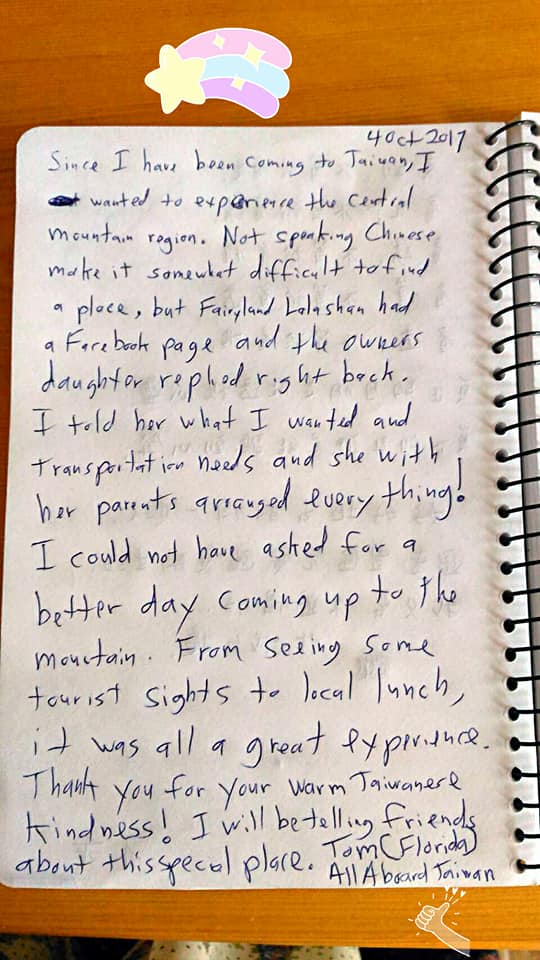 4 Oct 2017
Since I have been coming to Taiwan, I
wanted to experience the central
mountain region. Not speaking Chinese
make it somewhat difficult to find
a place, but Fairyland Lalashan had
a Facebook page and the owners
daughter replied right back.
I told her what I wanted and
transportation needs and she with
her parents arranged everything!
I could not have asked for a
better day coming up to the
mountain. From seeing some
tourist sights to local lunch,
it was all a great experience.
Thank you for your warm Taiwanese
kindness! I will be telling friends
about this specal place. Tom (Florida)
All Aboard Taiwan